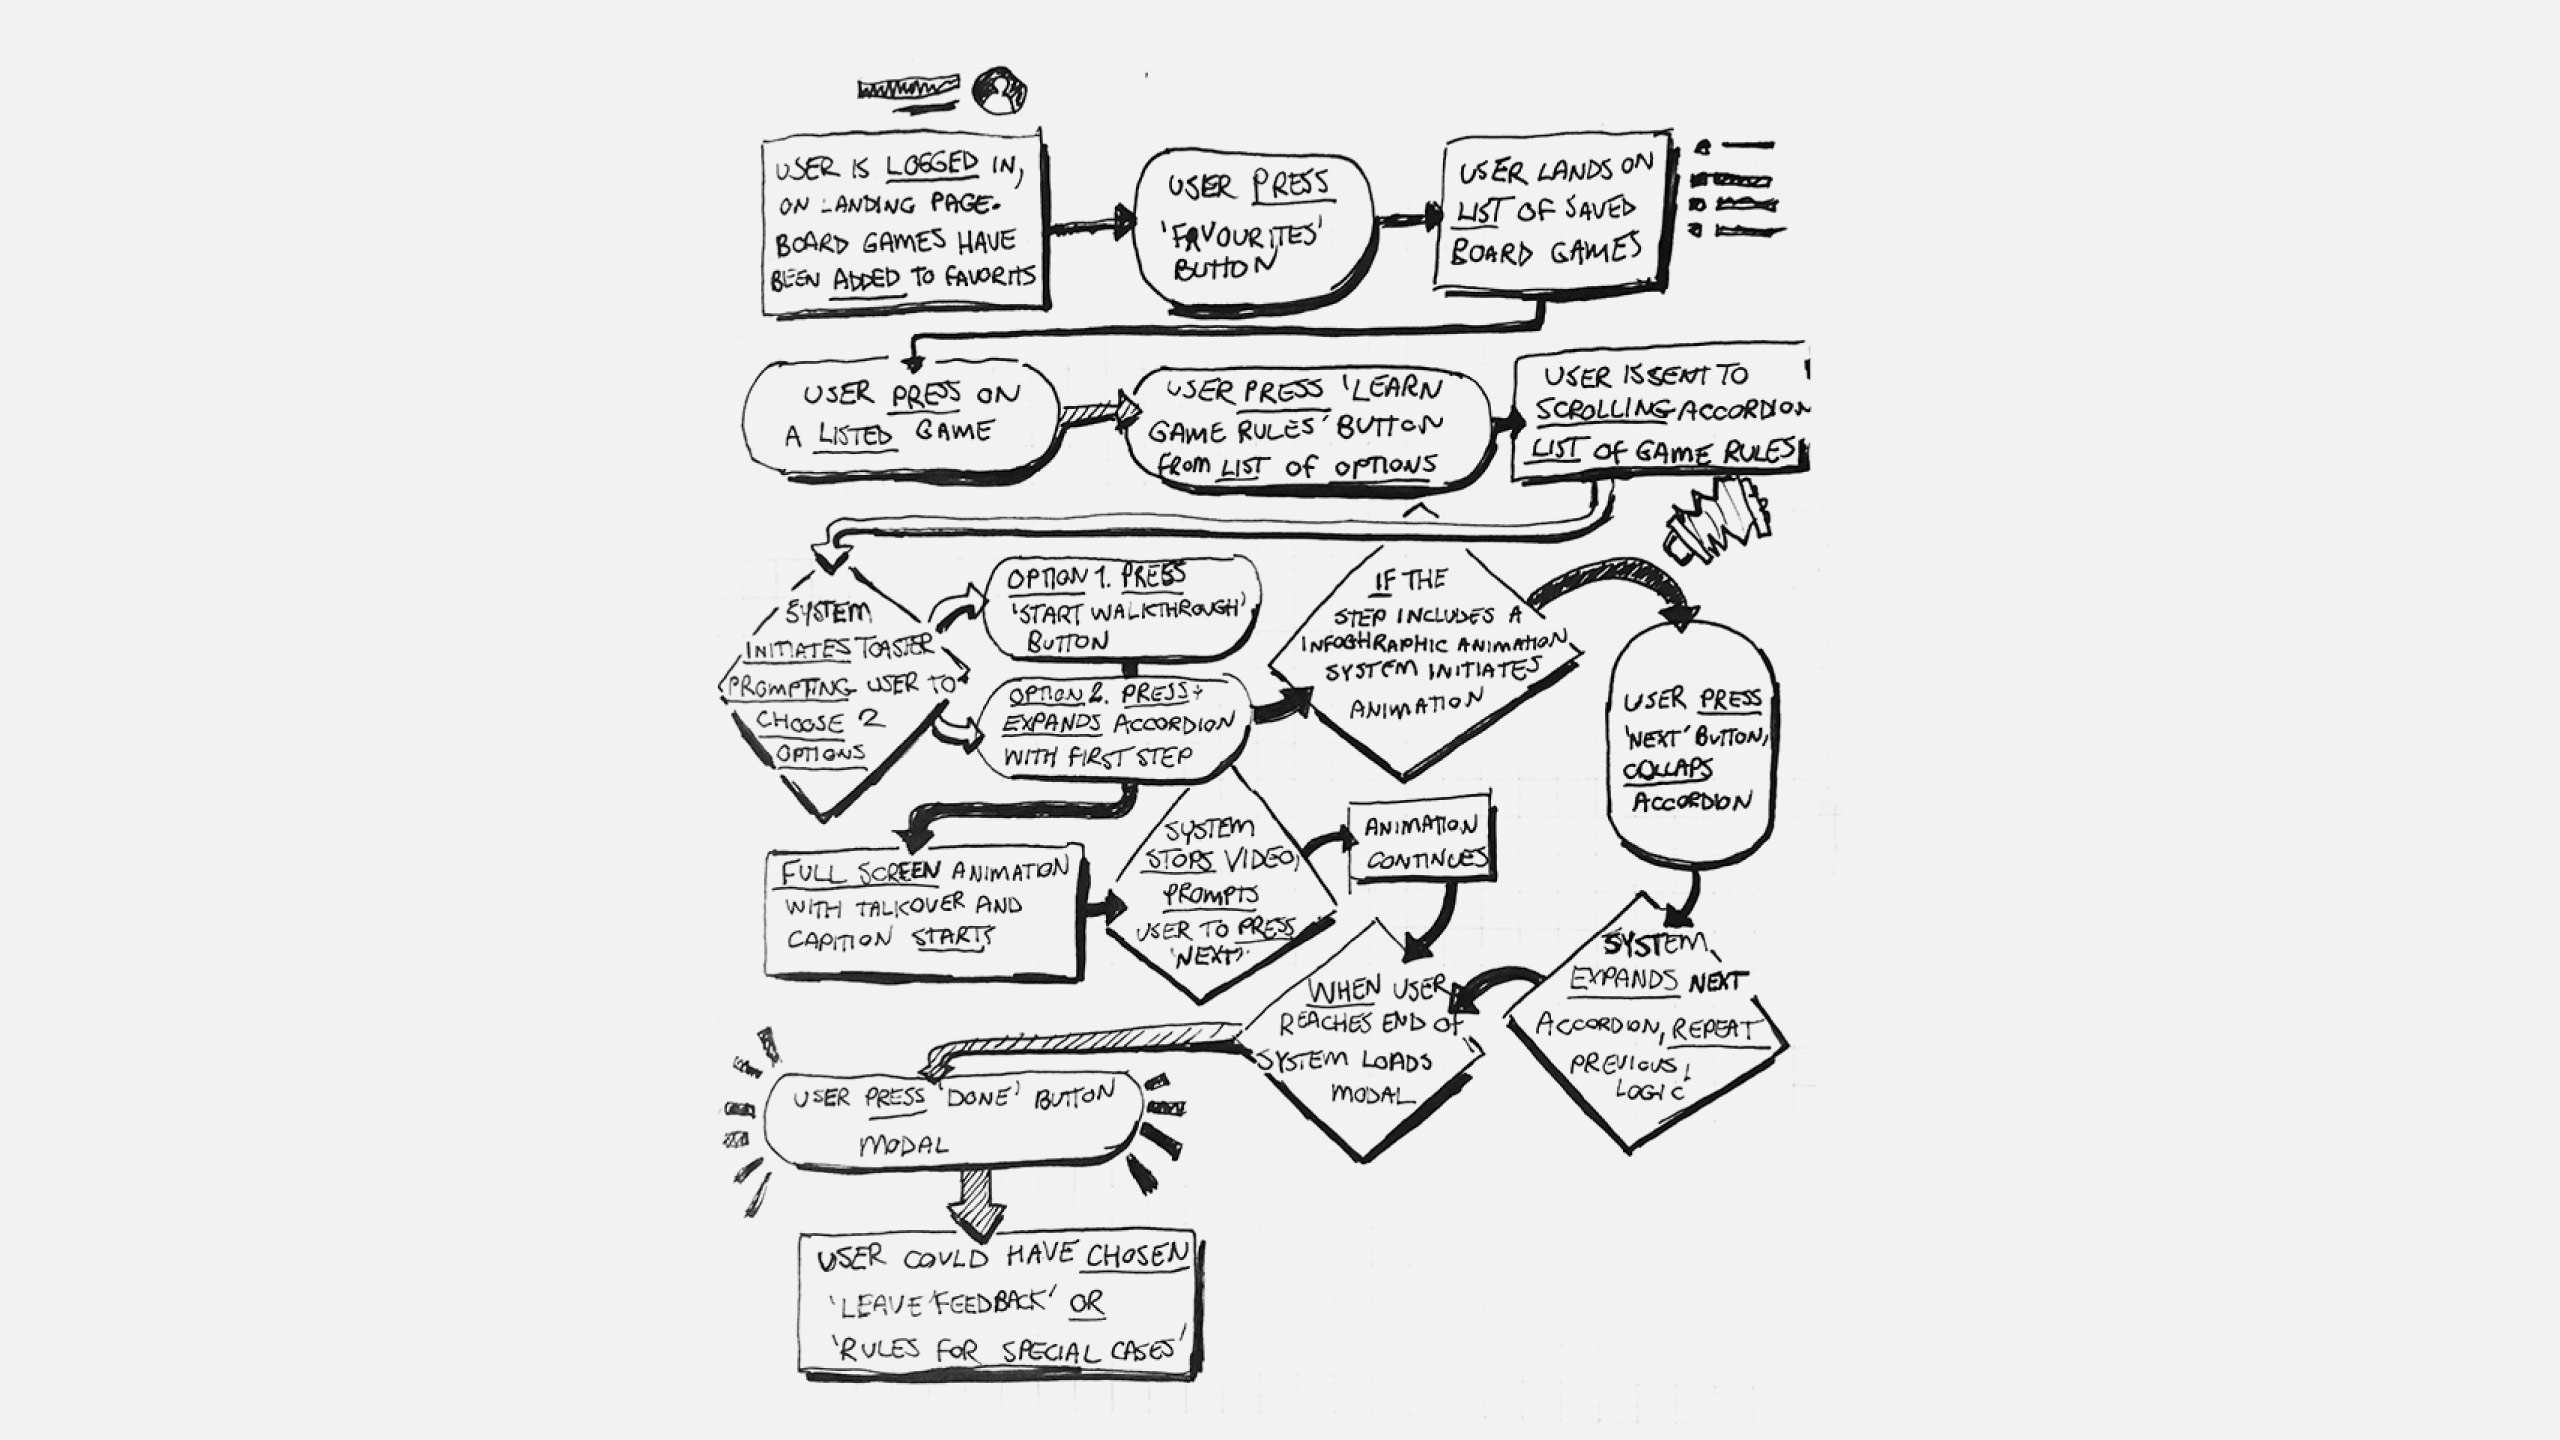 USER IS LOGGED IN,
ON LANDING PAGE.
BOARD GAMES HAVE
BEEN ADDED TO FAVORITS
USER PRESS
'FAVOURITES'
BUTTON
USER LANDS ON
LIST OF SAVED
BOARD GAMES
USER PRESS ON
A LISTED GAME
USER PRESS 'LEARN
GAME RULES' BUTTON
FROM LIST OF OPTIONS
USER IS SENT TO
SCROLLING ACCORDION
LIST OF GAME RULES
SYSTEM
INITIATES TOASTER
PROMPTING USER TO
CHOOSE 2
OPTIONS
OPTION 1. PRESS
'START WALKTHROUGH'
BUTTON
OPTION 2. PRESS +
EXPANDS ACCORDION
WITH FIRST STEP
IF THE
STEP INCLUDES A
INFOGHRAPHIC ANIMATION
SYSTEM INITIATES
ANIMATION
USER PRESS
'NEXT' BUTTON,
COLLAPS
ACCORDION
FULL SCREEN ANIMATION
WITH TALKOVER AND
CAPITION STARTS
SYSTEM
STOPS VIDEO,
PROMPTS
USER TO PRESS
'NEXT'.
ANIMATION
CONTINUES
SYSTEM
EXPANDS NEXT
ACCORDION, REPEAT
PREVIOUS
LOGIC
WHEN USER
REACHES END OF
SYSTEM LOADS
MODAL
USER PRESS 'DONE' BUTTON
MODAL
USER COULD HAVE CHOSEN
'LEAVE FEEDBACK' OR
'RULES FOR SPECIAL CASES'